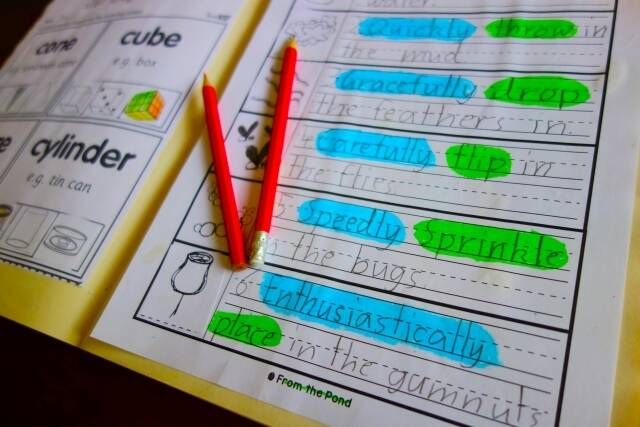 cone
cube
e.g. box
cylinder
e.g. tin can
water.
Quickly throw in
the mud.
Gracefully drop
the feathers in.
4 Carefully flip in
the flies.
5. Speedly sprinkle
in the bugs.
6. Enthusiastically
place in the gumnuts
From the Pond